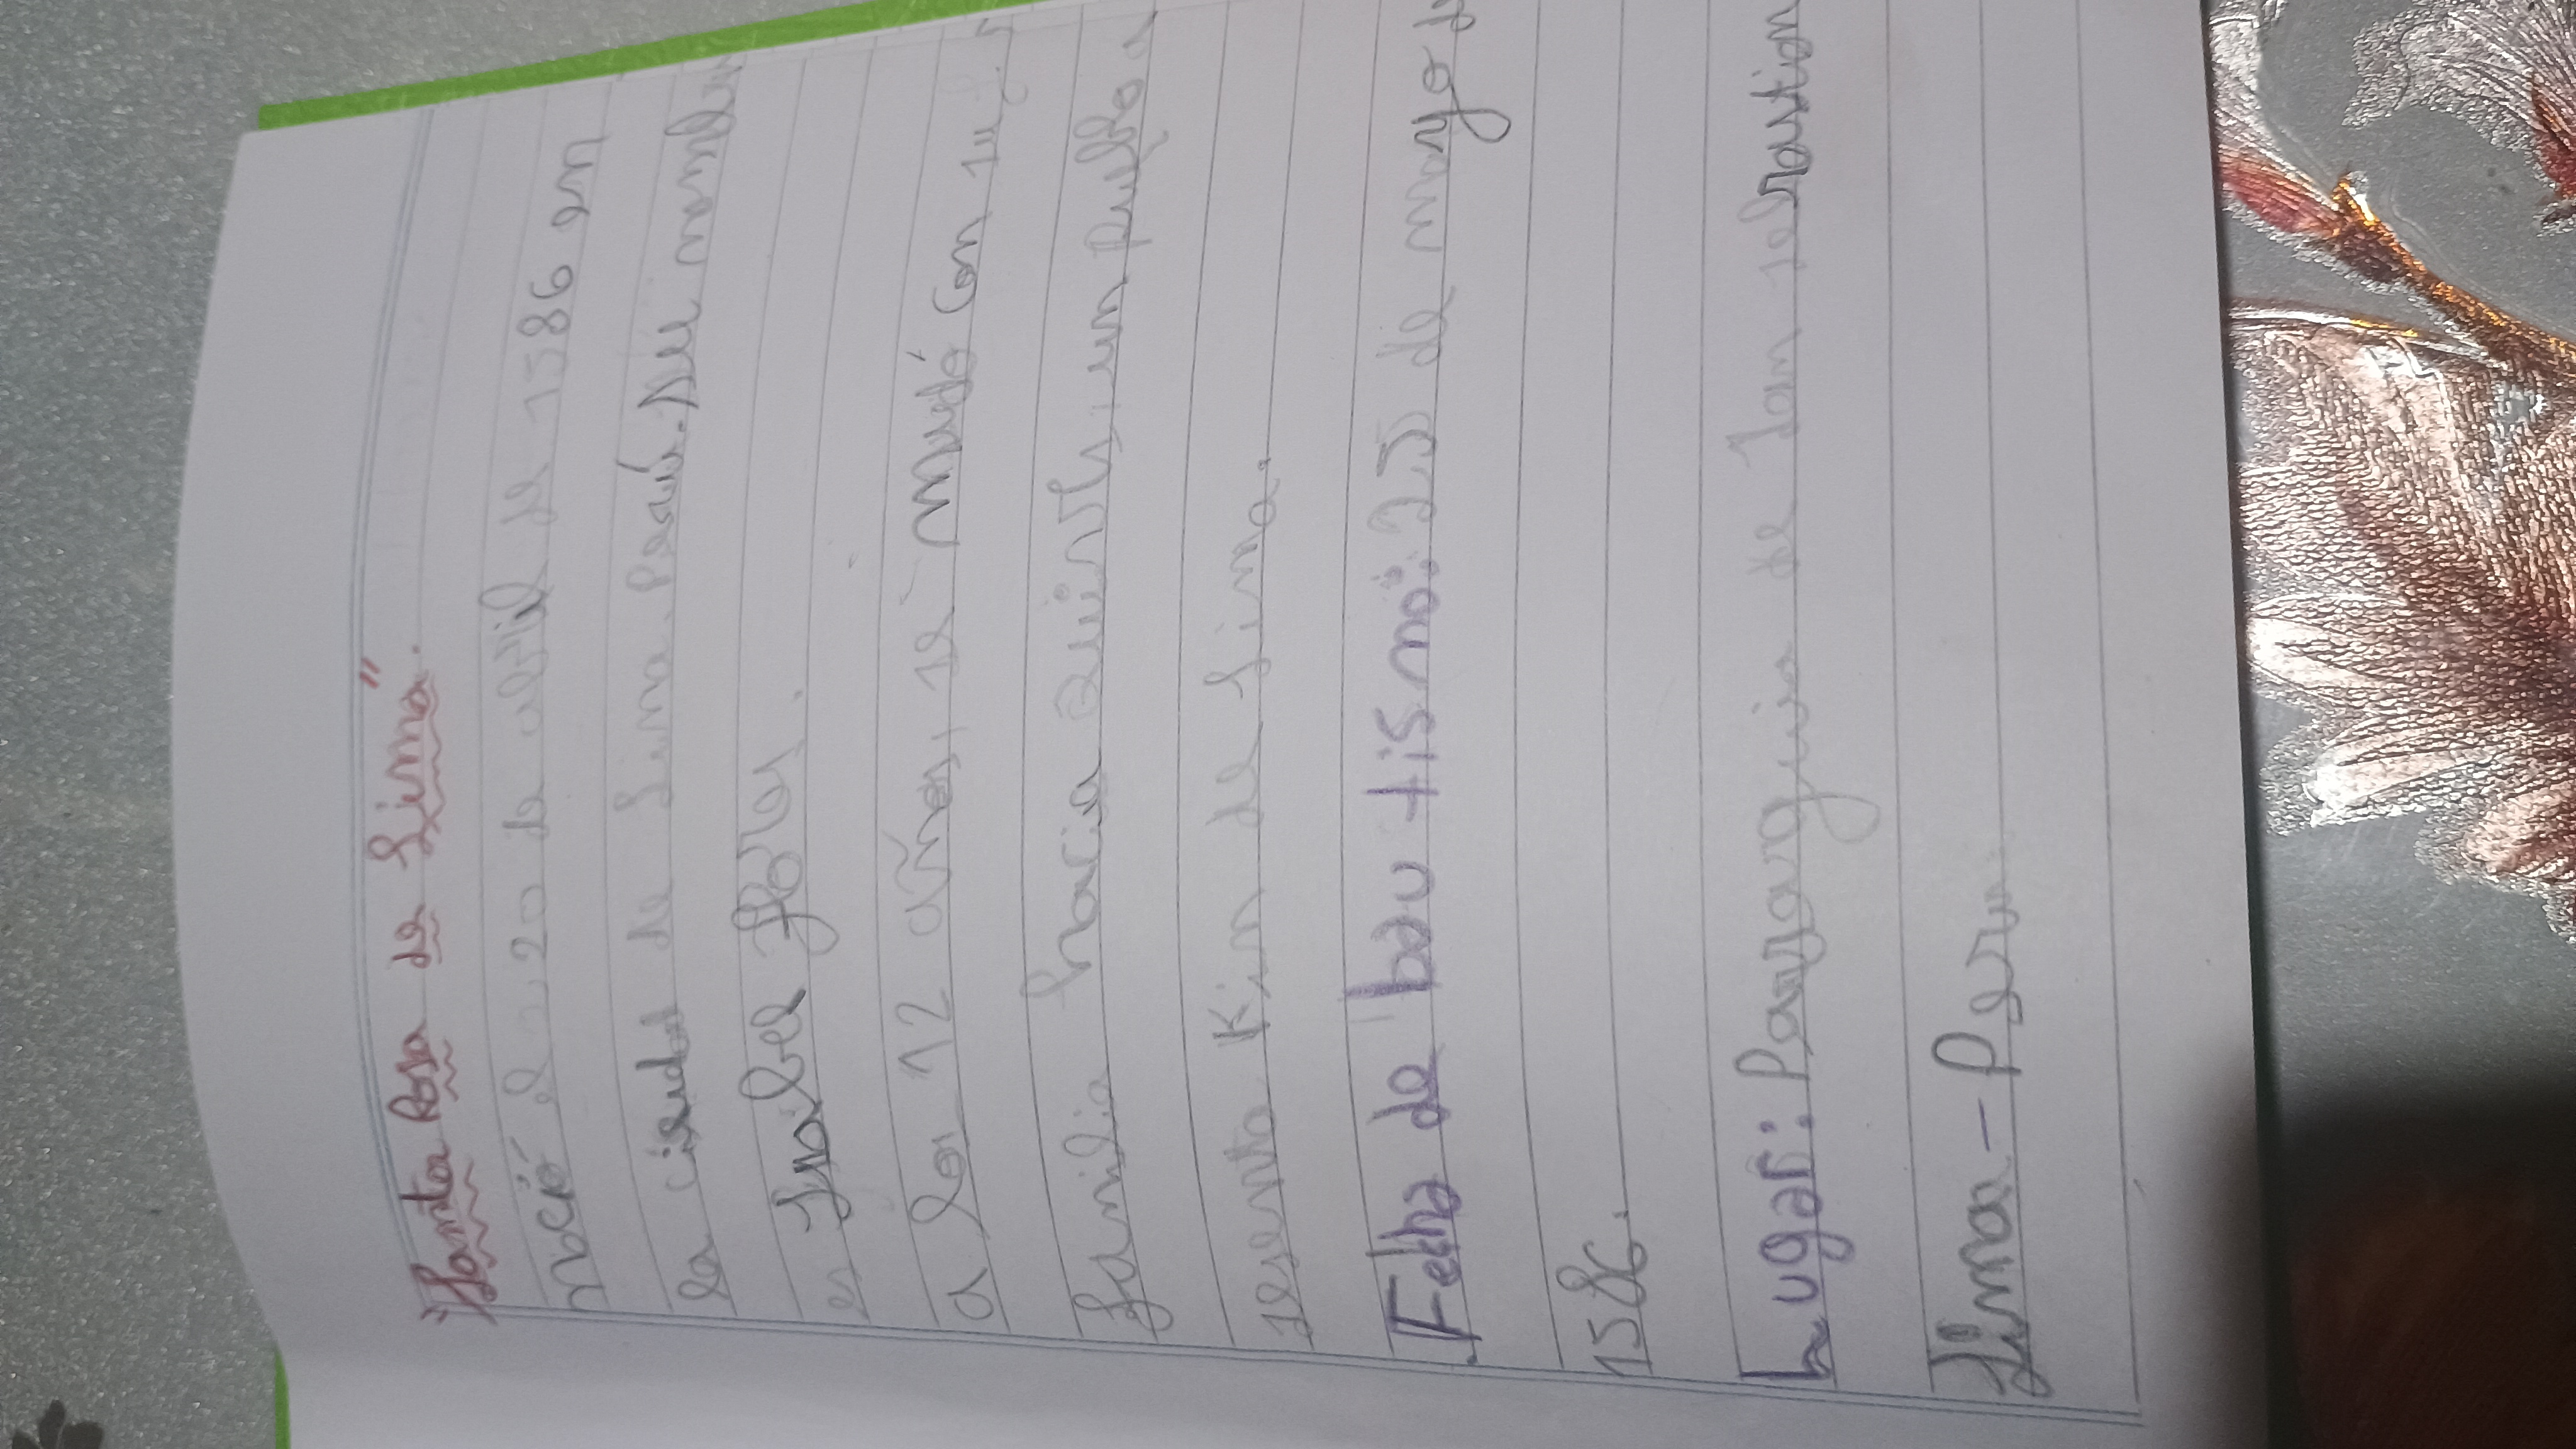 "Santa Rosa de Lima".
nació el 20 de abril de 1586 en
la ciudad de Lima. Perú. Su nombre
es Isabel flores.
a los 12 años, se mudó con su
familia hacia Quives, un pueblo a
sesenta Km de Lima.
Fecha de bautismo: 25 de mayo
1586.
Lugar: Parroquia de San sebastian
Lima - Peru